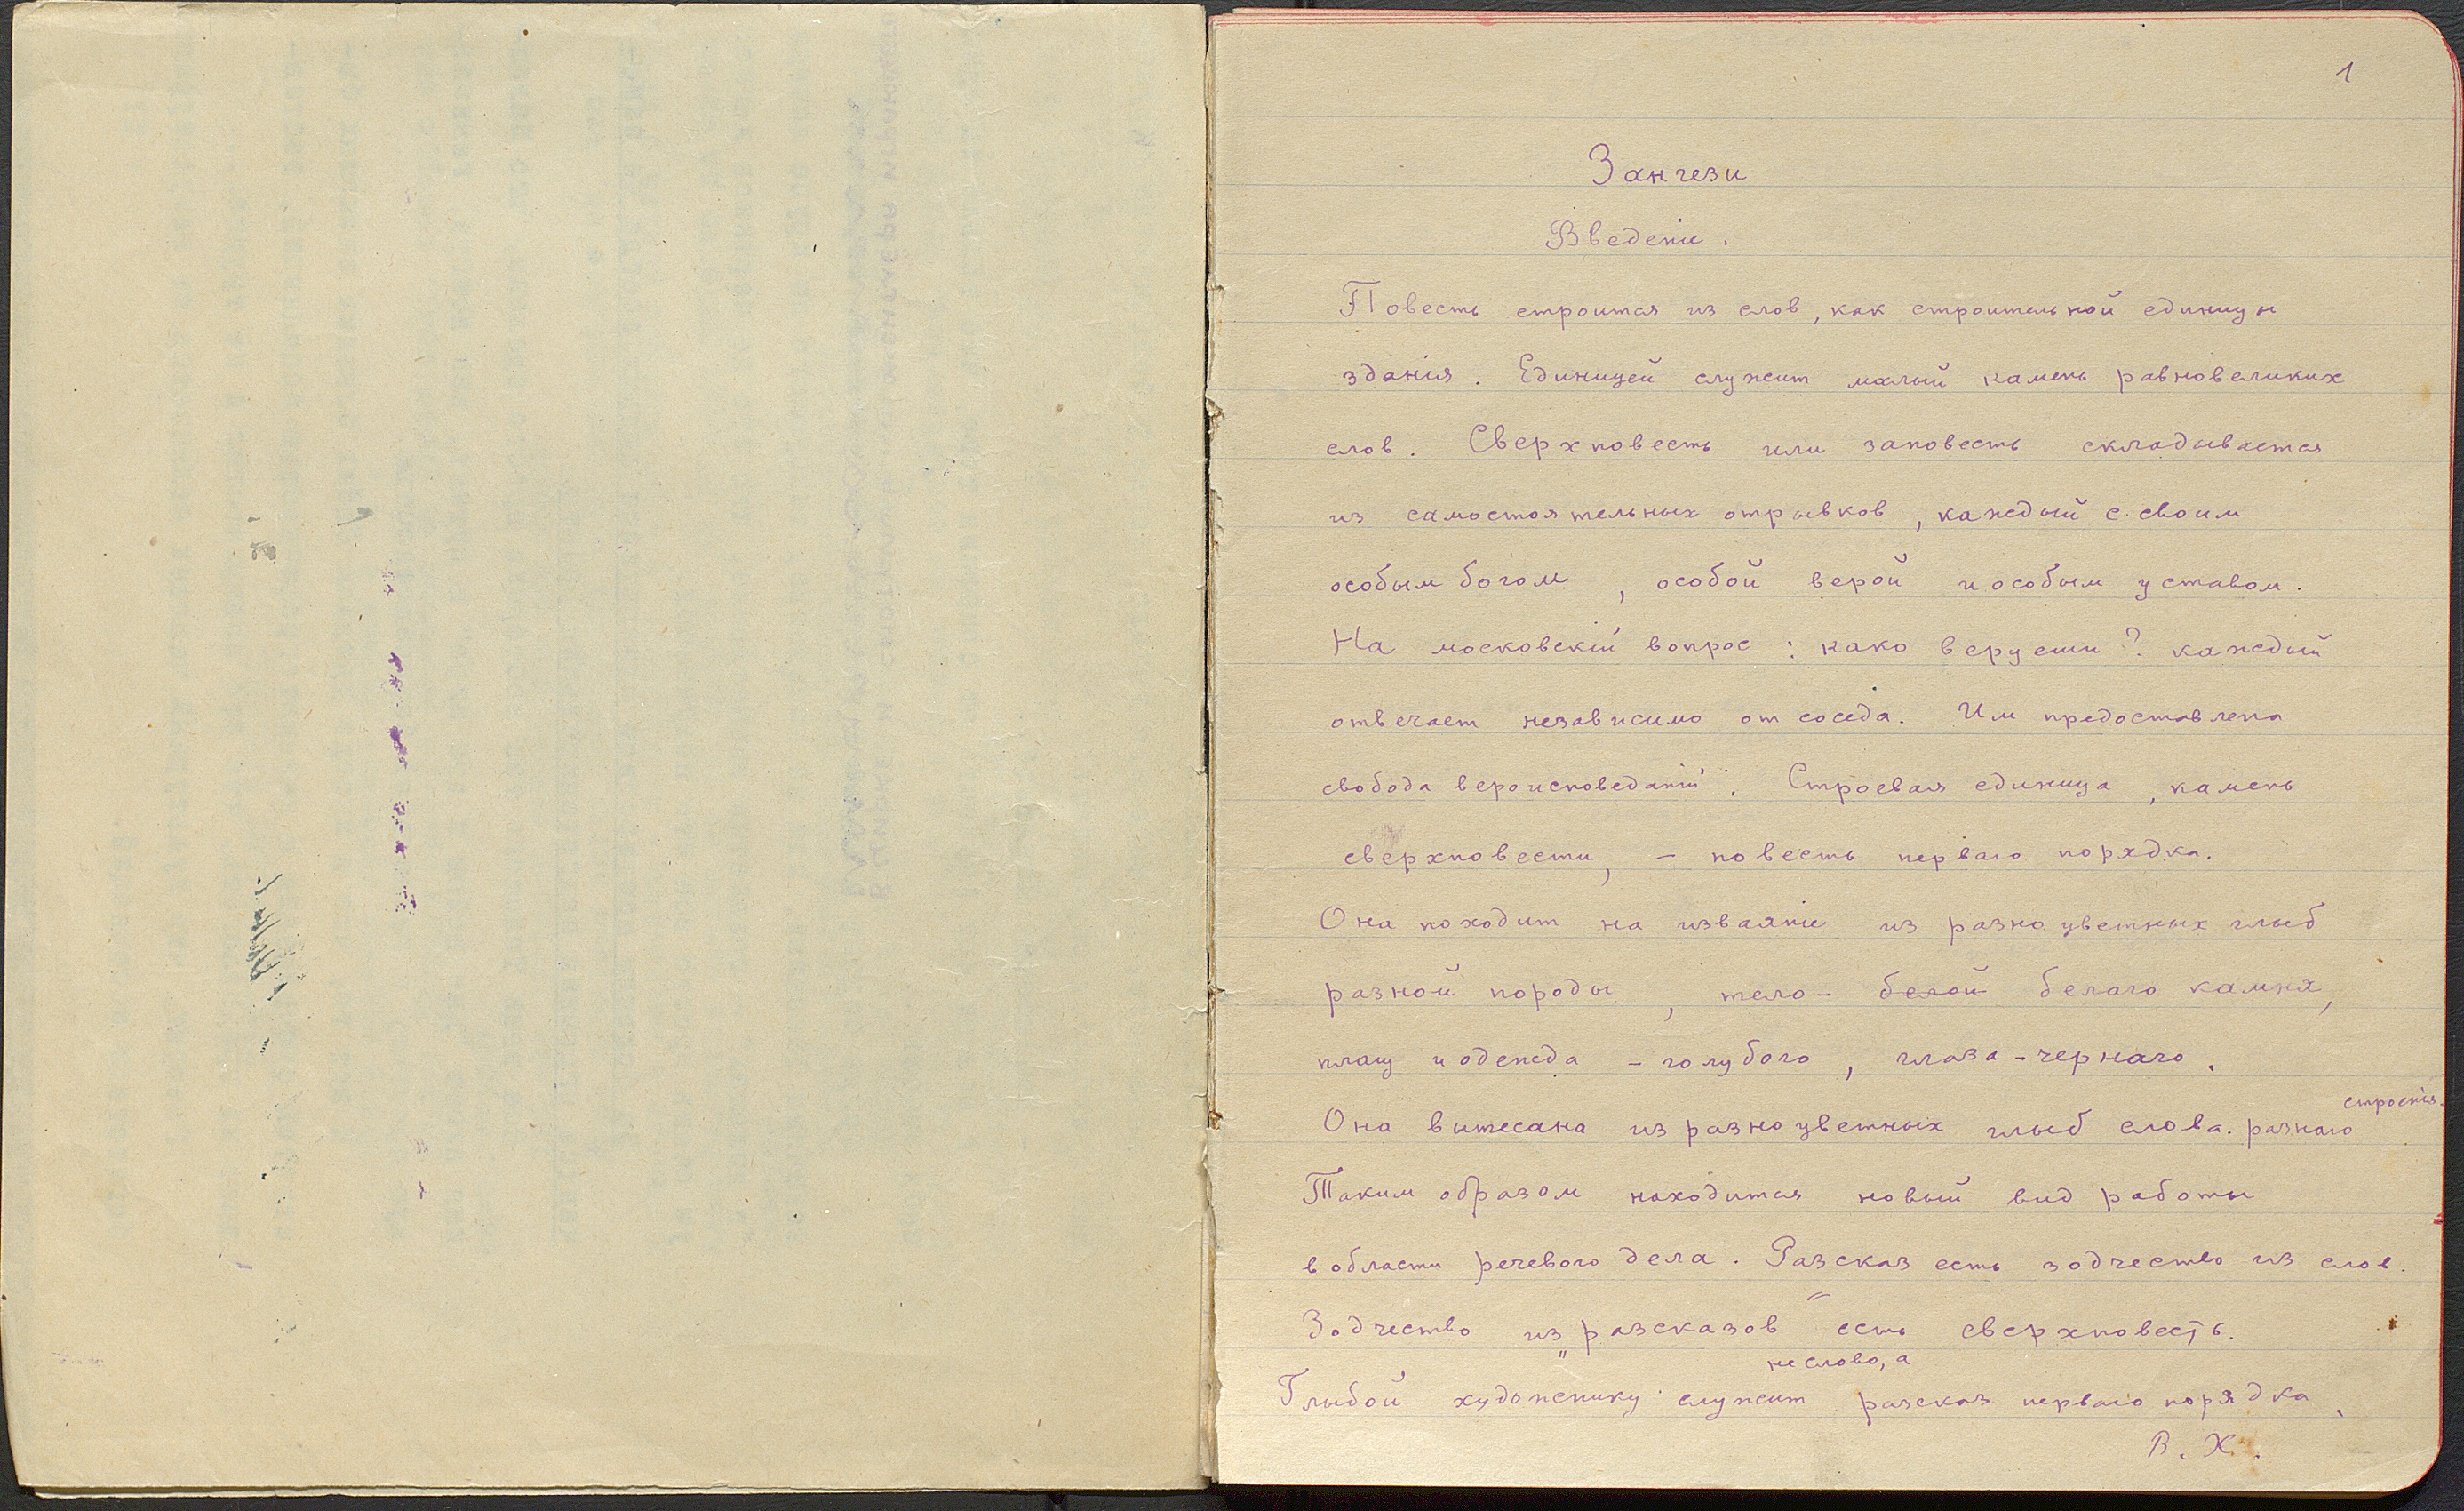 1
Зангези
Введенiе.
Повесть строится из слов, как строительной единицы
зданiя. Единицей служит малый камень равновеликих
слов. Сверхповесть или заповесть складывается
из самостоятельных отрывков, каждый с своим
особым богом, особой верой и особым уставом.
На московскiй вопрос: како веруеши? каждый
отвечает независимо от соседа. Им предоставлена
свобода вероисповеданiй. Строевая единица, камень
сверхповести, – повесть перваго порядка.
Она походит на изваянiе из разноцветных глыб
разной породы, тело – белой белаго камня,
плащ и одежда – голубого, глаза – чернаго.
Она вытесана из разноцветных глыб слова. разнаго строенiя.
Таким образом находится новый вид работы
в области речевого дела. Разсказ есть зодчество из слов.
Зодчество из „разсказов" есть сверхповесть.
Глыбой художнику служит не слово, а разсказ перваго порядка.
В. Х.